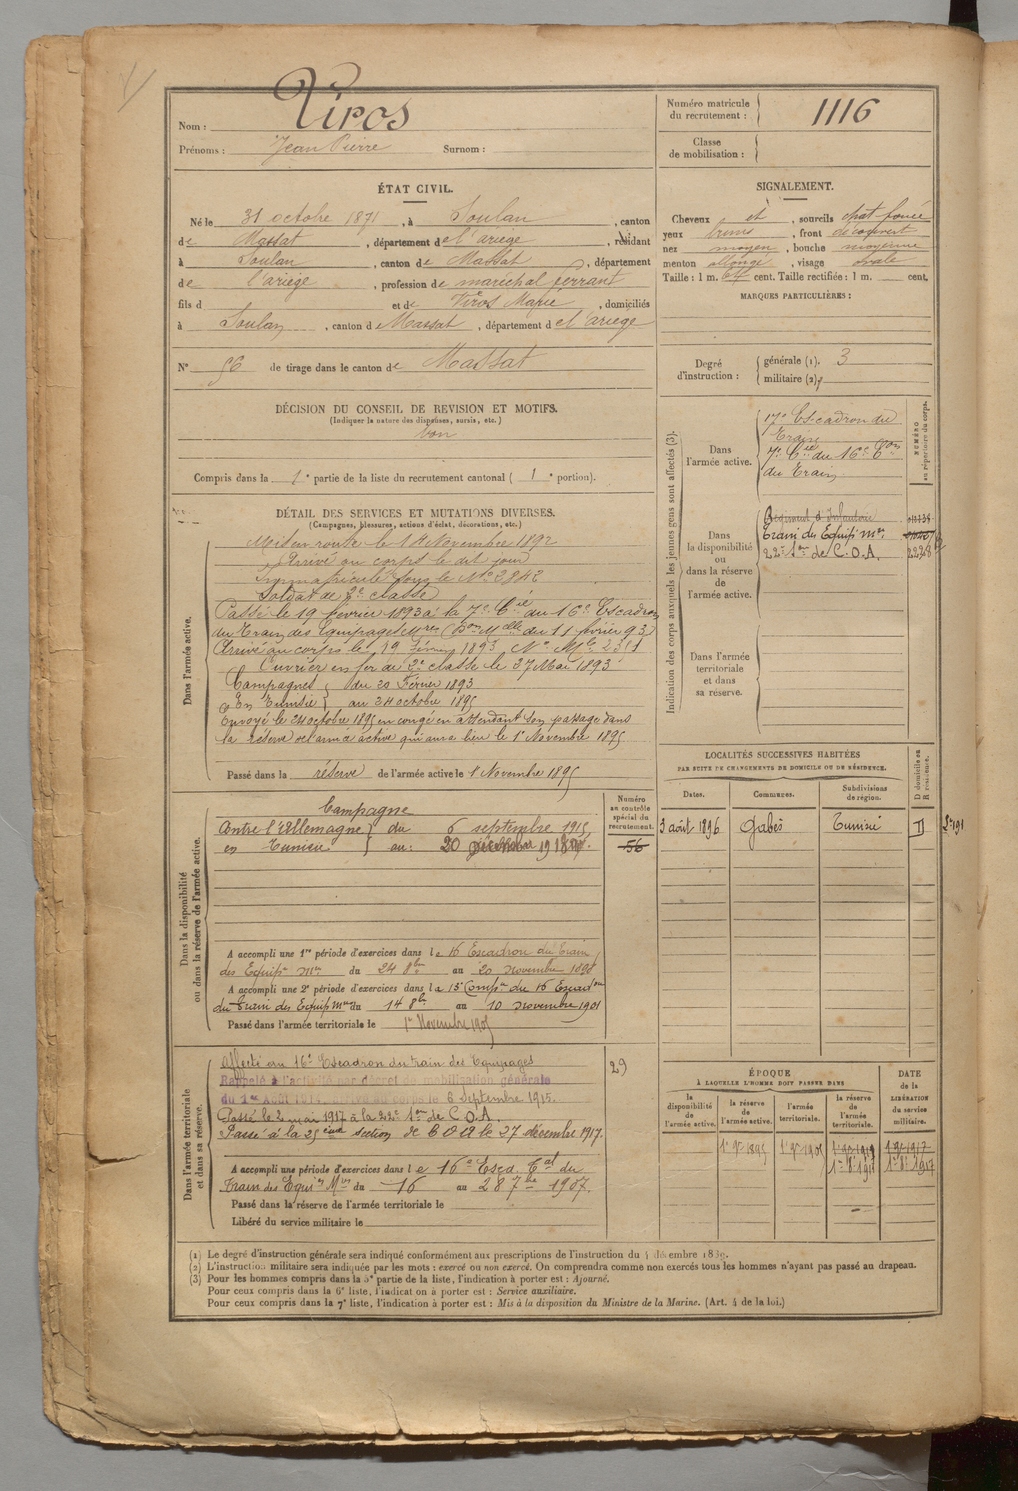 Nom : Viros
Prénoms : Jean Pierre Surnom :
Numéro matricule du recrutement : 1116
Classe de mobilisation :
ÉTAT CIVIL.
Né le 31 octobre 1871, à Soulan, canton
de Massat, département de l'ariège, résidant
à Soulan, canton de Massat, département
de l'ariège, profession de maréchal ferrant
fils d et de Viros Marie, domiciliés
à Soulan, canton de Massat, département de l'ariège
N° 56 de tirage dans le canton de Massat
SIGNALEMENT.
Cheveux et, sourcils chat foncé
yeux bruns, front découvert
nez moyen, bouche moyenne
menton allongé, visage ovale
Taille : 1 m. 64 cent. Taille rectifiée : 1 m. cent.
MARQUES PARTICULIÈRES :
Degré d'instruction : générale (1). 3
militaire (2)
DÉCISION DU CONSEIL DE REVISION ET MOTIFS.
(Indiquer la nature des dispenses, sursis, etc.)
bon
Compris dans la 1e partie de la liste du recrutement cantonal (1e portion).
DÉTAIL DES SERVICES ET MUTATIONS DIVERSES.
(Campagnes, blessures, actions d'éclat, décorations, etc.)
Dans l'armée active.
Mis en route le 14 Novembre 1892
Arrivé au corps le dit jour
Immatriculé sous le N° 2842
Soldat de 2e classe
Passé le 19 février 1893 à la 7e Cie du 16e Escadron
du Train des Equipages Mres (Don Melle du 11 février 93)
Arrivé au corps le 19 février 1893, N° Mle 2351
Ouvrier en fer de 2e classe le 27 Mai 1893
Campagnes du 20 Février 1893
En Tunisie au 24 octobre 1895
Envoyé le 24 octobre 1895 en congé en attendant son passage dans
la réserve de l'armée active qui aura lieu le 1er Novembre 1895
Passé dans la réserve de l'armée active le 1 Novembre 1895
Indication des corps auxquels les jeunes gens sont affectés (3).
NUMÉRO au répertoire du corps.
Dans l'armée active.
17e Escadron du
Train
7e Cie du 16e Eon
du Train
Dans la disponibilité ou dans la réserve de l'armée active.
Régiment d'Infanterie
Train des Equip. Mres
22e Son de C.O.A. 2228
Dans l'armée territoriale et dans sa réserve.
LOCALITÉS SUCCESSIVES HABITÉES
PAR SUITE DE CHANGEMENTS DE DOMICILE OU DE RÉSIDENCE.
D domicile ou R résidence.
Dates. Communes. Subdivisions de région.
3 août 1896 Gabès Tunisie
Dans la disponibilité ou dans la réserve de l'armée active.
Numéro au contrôle spécial du recrutement.
56
Campagne
Contre l'Allemagne du 6 septembre 1915
en Tunisie au :
A accompli une 1re période d'exercices dans le 16 Escadron du Train
des Equipes Mres du 24 8bre au 20 novembre 1898
A accompli une 2e période d'exercices dans la 15e Compie du 16 Escadron
du Train des Equip Mres du 14 8bre au 10 novembre 1901
Passé dans l'armée territoriale le 1er Novembre 1905
Dans l'armée territoriale et dans sa réserve.
29
Affecté au 16e Escadron du train des Equipages
Rappelé à l'activité par décret de mobilisation générale
du 1er Août 1914. Arrivé au corps le 6 Septembre 1915.
Passé le 2 mai 1917 à la 22e Son de C.O.A.
Passé à la 25ème section de C O A le 27 décembre 1917.
A accompli une période d'exercices dans le 16e Escd. Eal du
Train des Equipes Mres du 16 au 28 7bre 1907.
Passé dans la réserve de l'armée territoriale le
Libéré du service militaire le
ÉPOQUE
À LAQUELLE L'HOMME DOIT PASSER DANS
la disponibilité de l'armée active. la réserve de l'armée active. l'armée territoriale. la réserve de l'armée territoriale.
DATE de la LIBÉRATION du service militaire.
1er 9e 1895 1er 9e 1905
(1) Le degré d'instruction générale sera indiqué conformément aux prescriptions de l'instruction du 4 décembre 1889.
(2) L'instruction militaire sera indiquée par les mots : exercé ou non exercé. On comprendra comme non exercés tous les hommes n'ayant pas passé au drapeau.
(3) Pour les hommes compris dans la 5e partie de la liste, l'indication à porter est : Ajourné.
Pour ceux compris dans la 6e liste, l'indication à porter est : Service auxiliaire.
Pour ceux compris dans la 7e liste, l'indication à porter est : Mis à la disposition du Ministre de la Marine. (Art. 4 de la loi.)